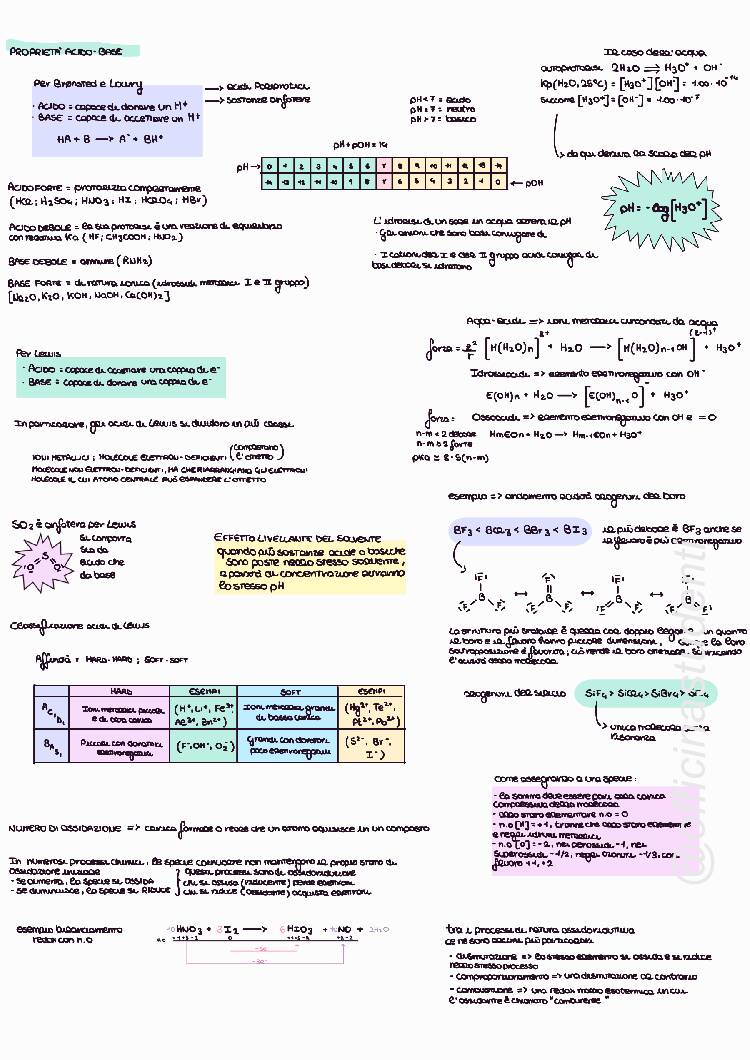 PROPRIETA' ACIDO-BASE
Per Brønsted e Lowry
· ACIDO = capace di donare un H+
· BASE = capace di accettare un H+
HA + B ⟶ A⁻ + BH⁺
⟶ acidi poliprotici
⟶ sostanze anfotere
pH < 7 = acido
pH = 7 = neutro
pH > 7 = basico
pH + pOH = 14
pH → 0 1 2 3 4 5 6 7 8 9 10 11 12 13 14
14 13 12 11 10 9 8 7 6 5 4 3 2 1 0 ← pOH
Il caso dell'acqua
autoprotolisi 2H₂O ⇌ H₃O⁺ + OH⁻
Kp(H₂O, 25°C) = [H₃O⁺][OH⁻] = 1.00 · 10⁻¹⁴
siccome [H₃O⁺] = [OH⁻] = 1.00 · 10⁻⁷
↳ da qui deriva la scala del pH
pH = -log[H₃O⁺]
ACIDO FORTE = protolizza completamente
(HCl; H₂SO₄; HNO₃; HI; HClO₄; HBr)
ACIDO DEBOLE = la sua protolisi è una reazione di equilibrio
con relativa Ka (HF; CH₃COOH; HNO₂)
BASE DEBOLE = ammine (RNH₂)
BASE FORTE = di natura ionica (idrossidi metallici I e II gruppo)
[Na₂O, K₂O, KOH, NaOH, Ca(OH)₂]
L'idrolisi di un sale in acqua altera il pH
· Gli anioni che sono basi coniugate di
· I cationi del I e del II gruppo acidi coniugati di
basi deboli si idratano
Aqua-acidi => ioni metallici circondati da acqua
forza = z²/r [M(H₂O)n]ᶻ⁺ + H₂O ⟶ [M(H₂O)n-1 OH]⁽ᶻ⁻¹⁾⁺ + H₃O⁺
Idrossoacidi => elemento elettronegativo con OH⁻
E(OH)n + H₂O ⟶ [E(OH)n-1 O]⁻ + H₃O⁺
forza: Ossoacidi => elemento elettronegativo con OH e = O
n-m < 2 debole HmEOn + H₂O → Hm-1EOn + H₃O⁺
n-m ≥ 2 forte
pKa ≅ 8 - 5(n-m)
Per Lewis
· ACIDO = capace di accettare una coppia di e⁻
· BASE = capace di donare una coppia di e⁻
In particolare, gli acidi di Lewis si dividono in più classi
IONI METALLICI ; MOLECOLE ELETTRON-DEFICIENTI (completano l'ottetto)
MOLECOLE NON ELETTRON-DEFICIENTI, MA CHE RIARRANGIANO GLI ELETTRONI
MOLECOLE IL CUI ATOMO CENTRALE PUÒ ESPANDERE L'OTTETTO
SO₂ è anfotera per Lewis
O S O
Si comporta
sia da
acido che
da base
EFFETTO LIVELLANTE DEL SOLVENTE
quando più sostanze acide o basiche
sono poste nello stesso solvente,
a parità di concentrazione avranno
lo stesso pH
esempio => andamento acidità alogenuri del boro
BF₃ < BCl₃ < BBr₃ < BI₃
il più debole è BF₃ anche se
il fluoro è più elettronegativo
F B F F ↔ F B F F ↔ F B F F ↔ F B F F
La struttura più stabile è quella col doppio legame
boro e il fluoro hanno piccole dimensioni,
sovrapposizione è favorita; ciò rende il boro
l'acidità della molecola
alogenuri del silicio SiF₄ > SiCl₄ > SiBr₄ > SiI₄
↳ unica molecola
risonanza
Classificazione acidi di Lewis
Affinità = HARD-HARD ; SOFT-SOFT
HARD ESEMPI SOFT ESEMPI
Acidi Ioni metallici piccoli e di alta carica (H⁺, Li⁺, Fe³⁺ Al³⁺, Zn²⁺) Ioni metallici grandi di bassa carica (Hg²⁺, Te²⁺, Pt²⁺, Pd²⁺)
Basi Piccole con donatori elettronegativi (F⁻, OH⁻, O₂⁻) Grandi con donatori poco elettronegativi (S²⁻, Br⁻, I⁻)
Come assegnarlo a una specie:
- la somma deve essere pari alla carica
complessiva della molecola
- allo stato elementare n.o = 0
- n.o [H] = +1, tranne che allo stato elementare
e negli idruri metallici
- n.o [O] = -2, nei perossidi -1, nei
superossidi -1/2, negli ozonuri -1/3, col
fluoro +1, +2
NUMERO DI OSSIDAZIONE => carica formale o reale che un atomo aquisisce in un composto
In numerosi processi chimici, le specie coinvolte non mantengono il proprio stato di
ossidazione iniziale
- se aumenta, la specie si OSSIDA
- se diminuisce, la specie si RIDUCE
questi processi sono di ossidoriduzione
chi si ossida (riducente) perde elettroni
chi si riduce (ossidante) acquista elettroni
esempio bilanciamento
redox con n.o
10HNO₃ + 3I₂ ⟶ 6HIO₃ + 10NO + 2H₂O
n.o +1+5-2 0 +1+5-2 +2-2
Tra i processi di natura ossidoriduttiva
ce ne sono alcuni più particolari
- dismutazione => lo stesso elemento si ossida e si riduce
nello stesso processo
- comproporzionamento => una dismutazione al contrario
- combustione => una redox molto esotermica in cui
l'ossidante è chiamato "comburente"
@officinastudenti